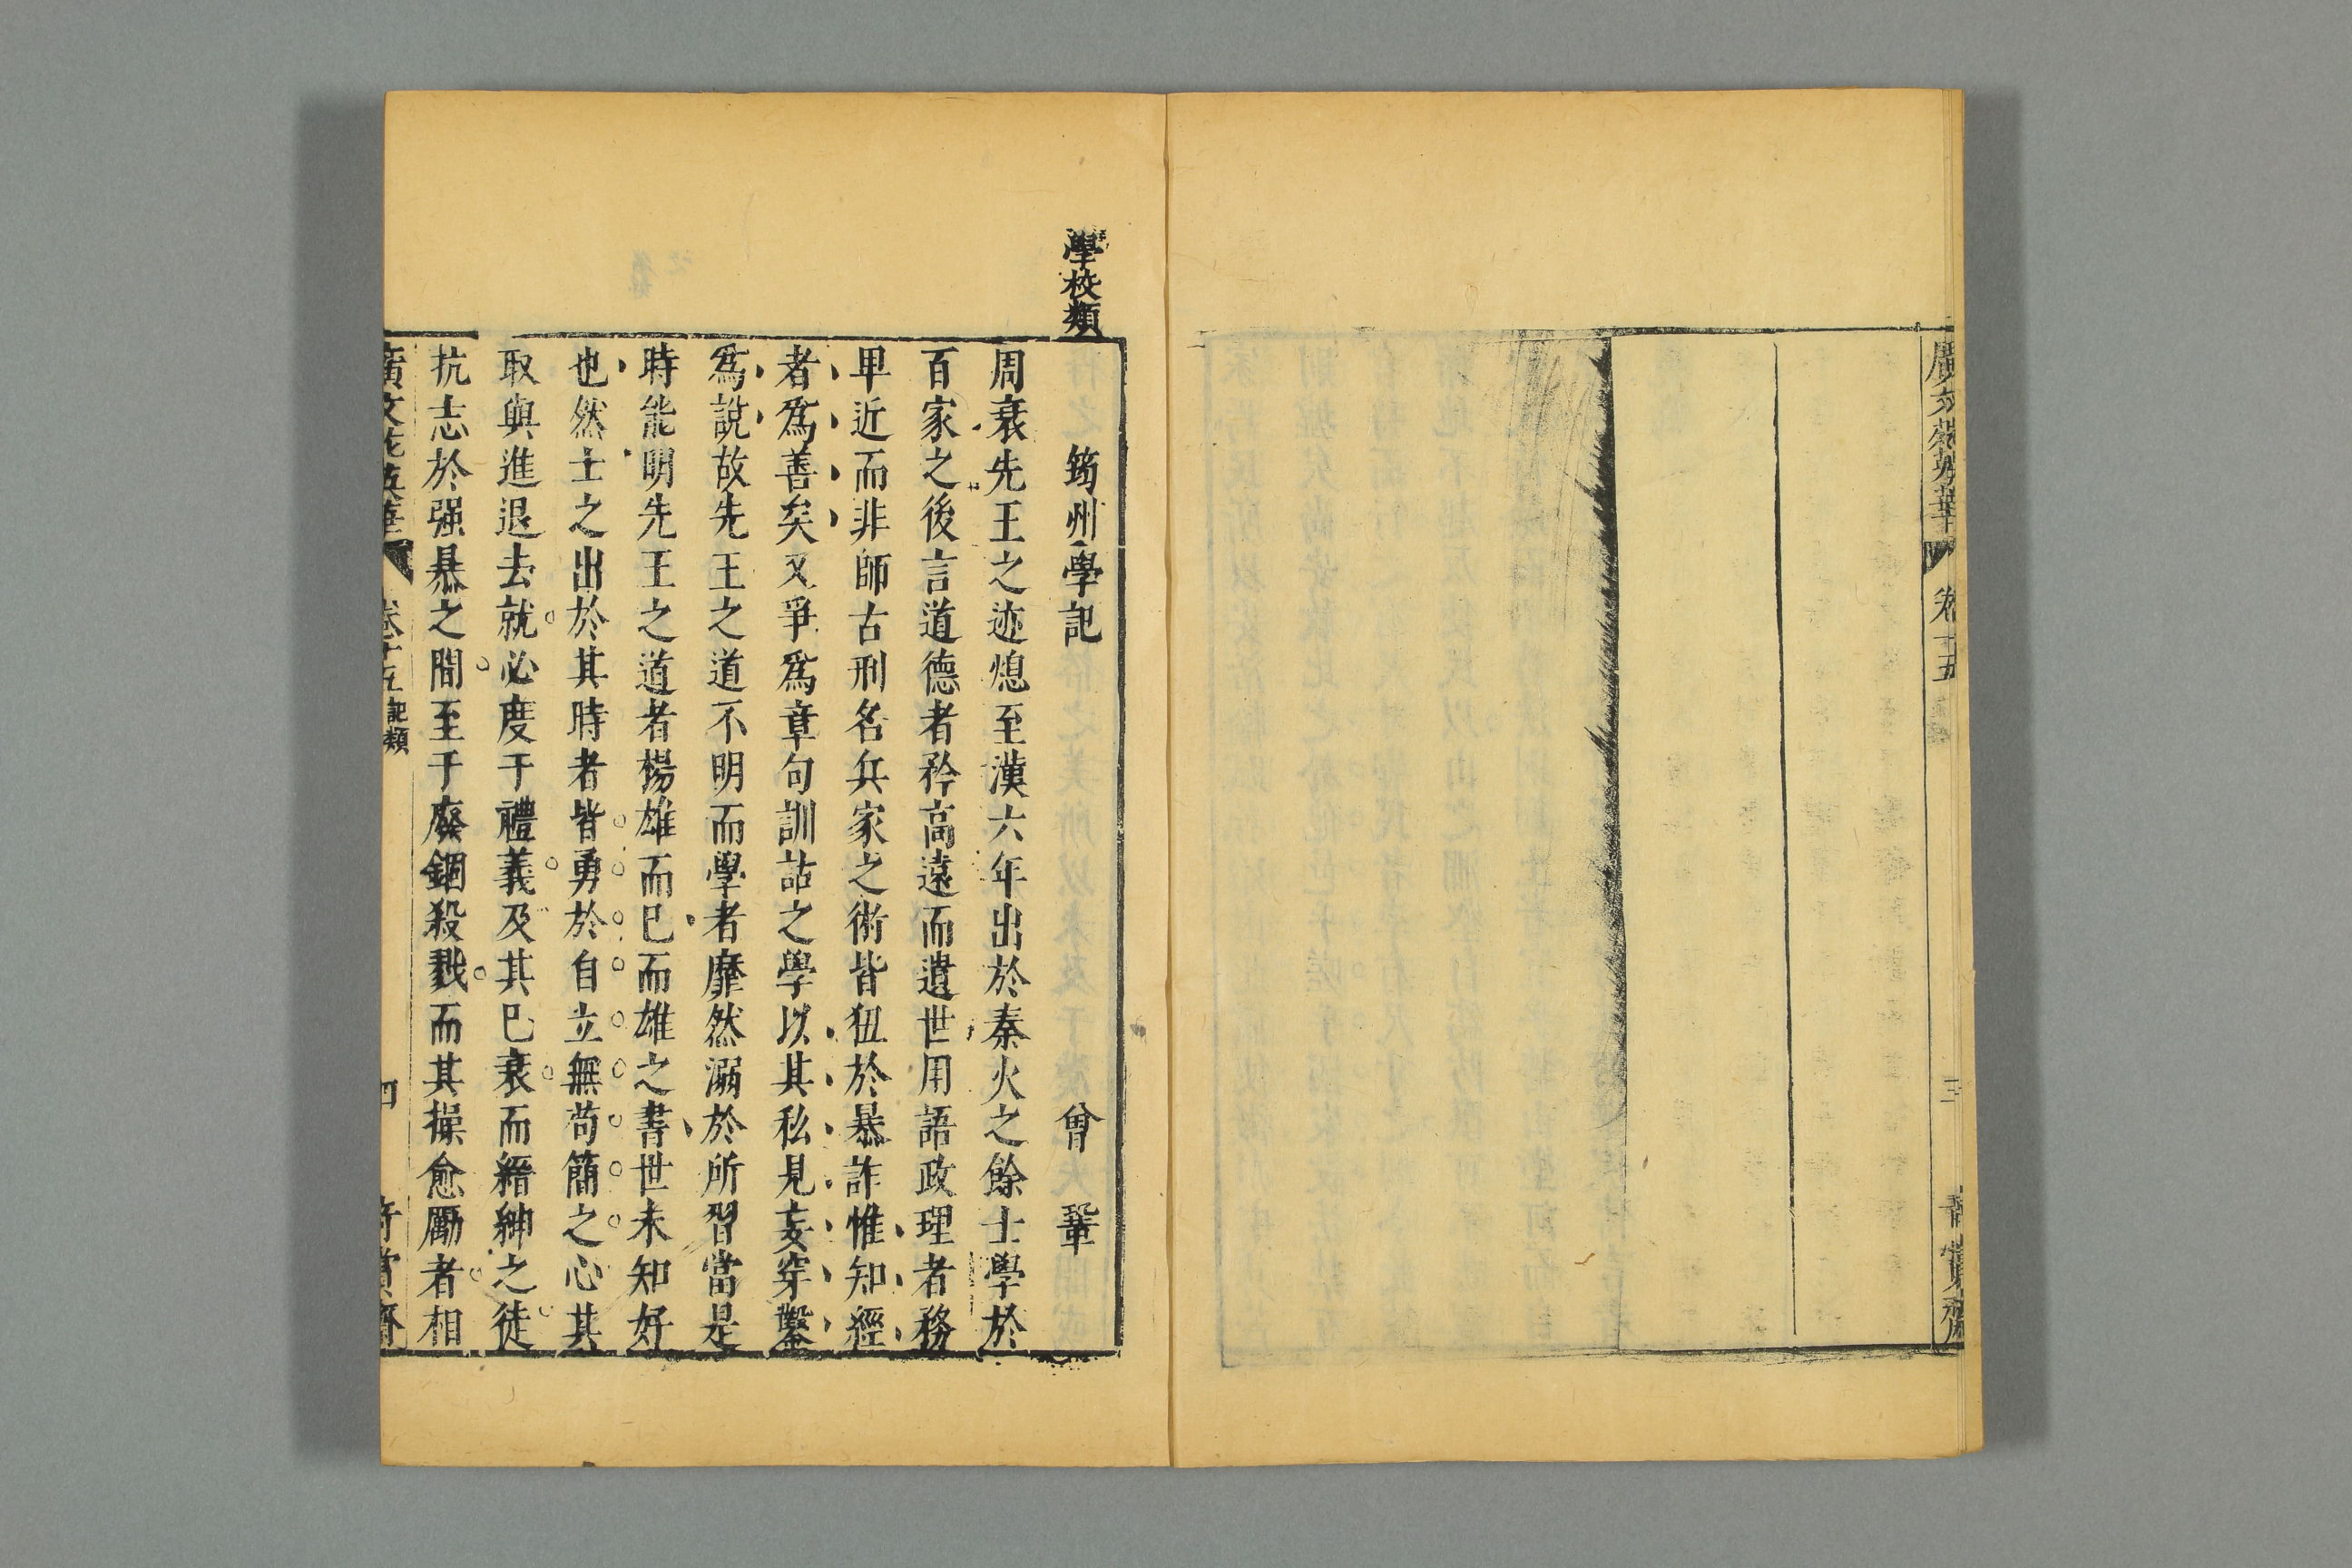 廣文苑英華
卷十五
三
奇賞齋
學校類
筠州學記
曾鞏
周衰先王之迹熄至漢六年出於秦火之餘士學於
百家之後言道德者矜高遠而遺世用語政理者務
卑近而非師古刑名兵家之術皆狃於暴詐惟知經
者爲善矣又爭爲章句訓詁之學以其私見妄穿鑿
爲說故先王之道不明而學者靡然溺於所習當是
時能明先王之道者楊雄而已而雄之書世未知好
也然士之出於其時者皆勇於自立無苟簡之心其
取與進退去就必度于禮義及其巳衰而縉紳之徒
抗志於强暴之間至于廢錮殺戮而其操愈厲者相
廣文苑英華
卷十五
記類
四
奇賞齋